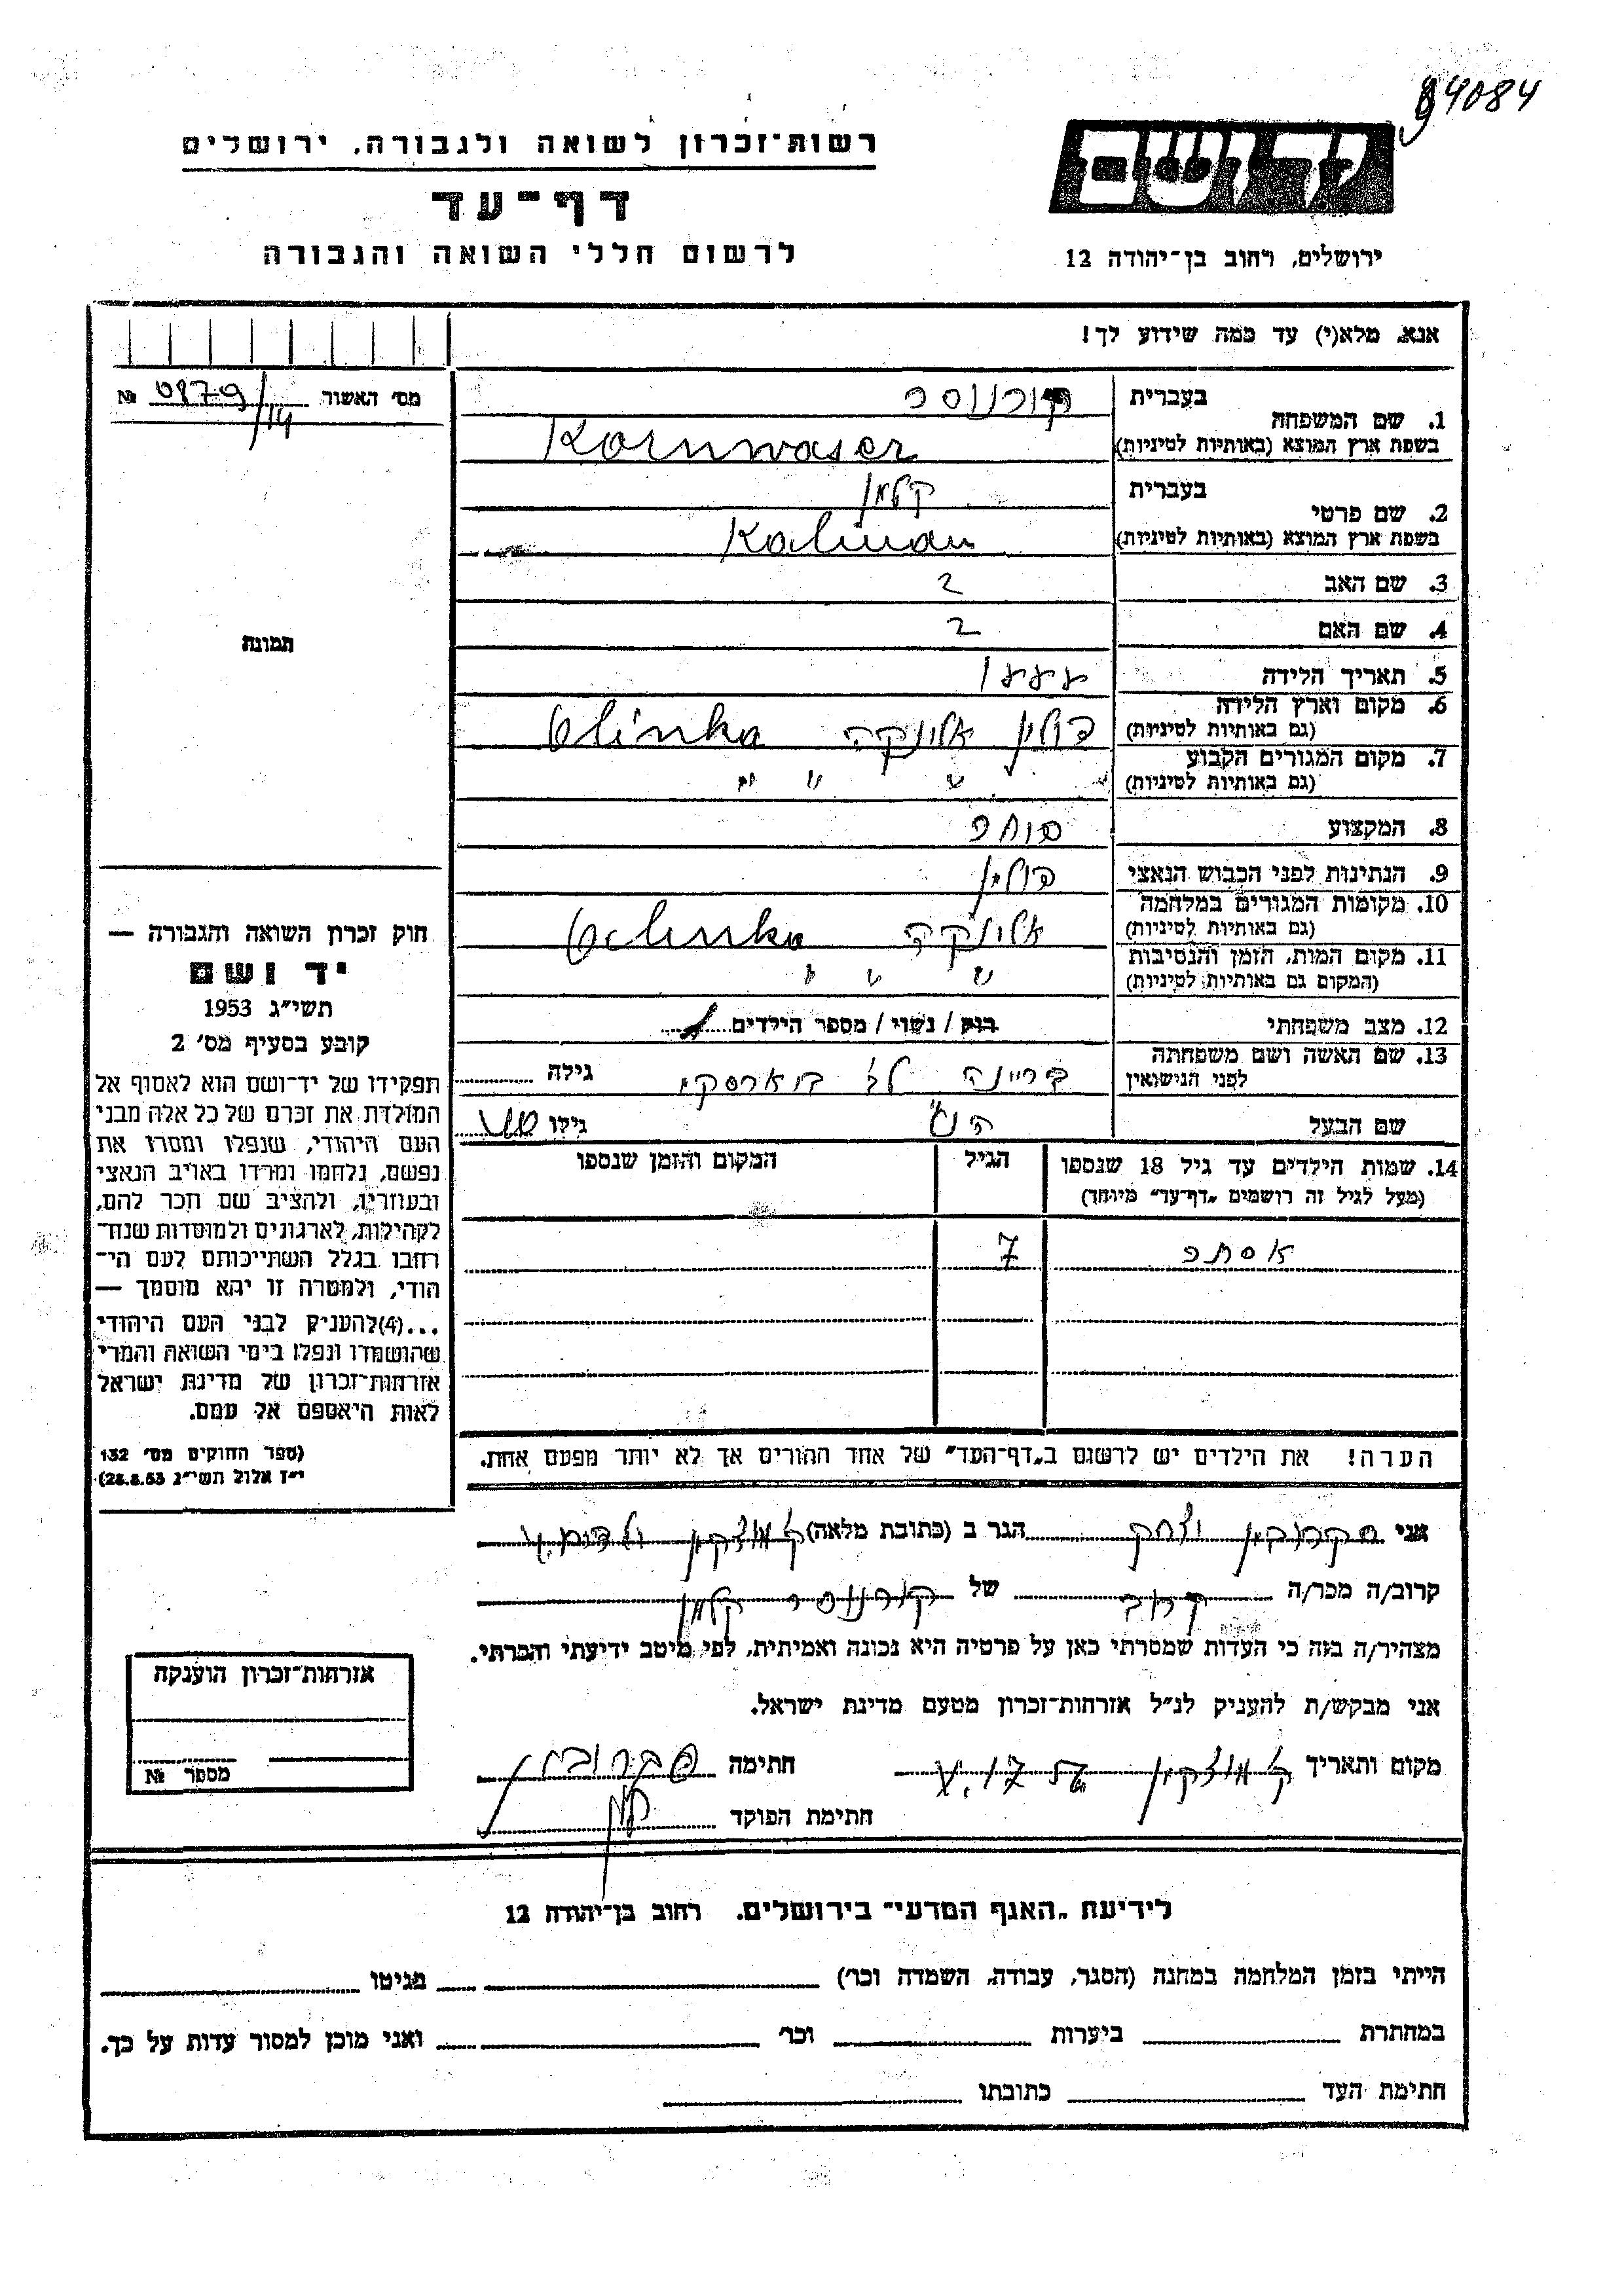 94084
רשות־זכרון לשואה ולגבורה, ירושלים
דף־עד
לרשום חללי השואה והגבורה
יד ושם
ירושלים, רחוב בן־יהודה 12
אנא, מלא(י) עד כמה שידוע לך!
מס׳ האשור № 0879/14
1. שם המשפחה
בעברית קורנוסר
בשפת ארץ המוצא (באותיות לטיניות) Kornwaser
2. שם פרטי
בעברית קלמן
בשפת ארץ המוצא (באותיות לטיניות) Kalman
3. שם האב ?
4. שם האם ?
5. תאריך הלידה
6. מקום וארץ הלידה פולין אלינקה Olinka
(גם באותיות לטיניות)
7. מקום המגורים הקבוע " " " "
(גם באותיות לטיניות)
8. המקצוע סוחר
9. הנתינות לפני הכבוש הנאצי פולין
10. מקומות המגורים במלחמה אלינקה
(גם באותיות לטיניות)
11. מקום המות, הזמן והנסיבות " " "
(המקום גם באותיות לטיניות)
12. מצב משפחתי רווק / נשוי / מספר הילדים 1
13. שם האשה ושם משפחתה בריינה לב׳ גילה
לפני הנישואין
שם הבעל הנ״ל גילו
14. שמות הילדים עד גיל 18 שנספו הגיל המקום והזמן שנספו
(מעל לגיל זה רושמים „דף־עד״ מיוחד)
אסתר 7
הערה! את הילדים יש לרשום ב„דף־העד״ של אחד ההורים אך לא יותר מפעם אחת.
תמונה
חוק זכרון השואה והגבורה —
יד ושם
תשי״ג 1953
קובע בסעיף מס׳ 2
תפקידו של יד־ושם הוא לאסוף אל
המולדת את זכרם של כל אלה מבני
העם היהודי, שנפלו ומסרו את
נפשם, נלחמו ומרדו באויב הנאצי
ובעוזריו, ולהציב שם וזכר להם,
לקהילות, לארגונים ולמוסדות שנח־
רבו בגלל השתייכותם לעם הי־
הודי, ולמטרה זו יהא מוסמך —
...(4) להעניק לבני העם היהודי
שהושמדו ונפלו בימי השואה והמרי
אזרחות־זכרון של מדינת ישראל
לאות היאספם אל עמם.
(ספר החוקים מס׳ 132
י״ז אלול תשי״ג 28.8.53)
אני יצחק הגר ב (כתובת מלאה) ק. מוצקין
קרוב/ה מכר/ה קרוב של קורנוסר קלמן
מצהיר/ה בזה כי העדות שמסרתי כאן על פרטיה היא נכונה ואמיתית, לפי מיטב ידיעתי והכרתי.
אני מבקש/ת להעניק לנ״ל אזרחות־זכרון מטעם מדינת ישראל.
מקום ותאריך ק. מוצקין חתימה
חתימת הפוקד
אזרחות־זכרון הוענקה
מספר №
לידיעת „האגף המדעי״ בירושלים, רחוב בן־יהודה 12
הייתי בזמן המלחמה במחנה (הסגר, עבודה, השמדה וכו׳) בגיטו
במחתרת ביערות וכו׳ ואני מוכן למסור עדות על כך.
חתימת העד כתובתו